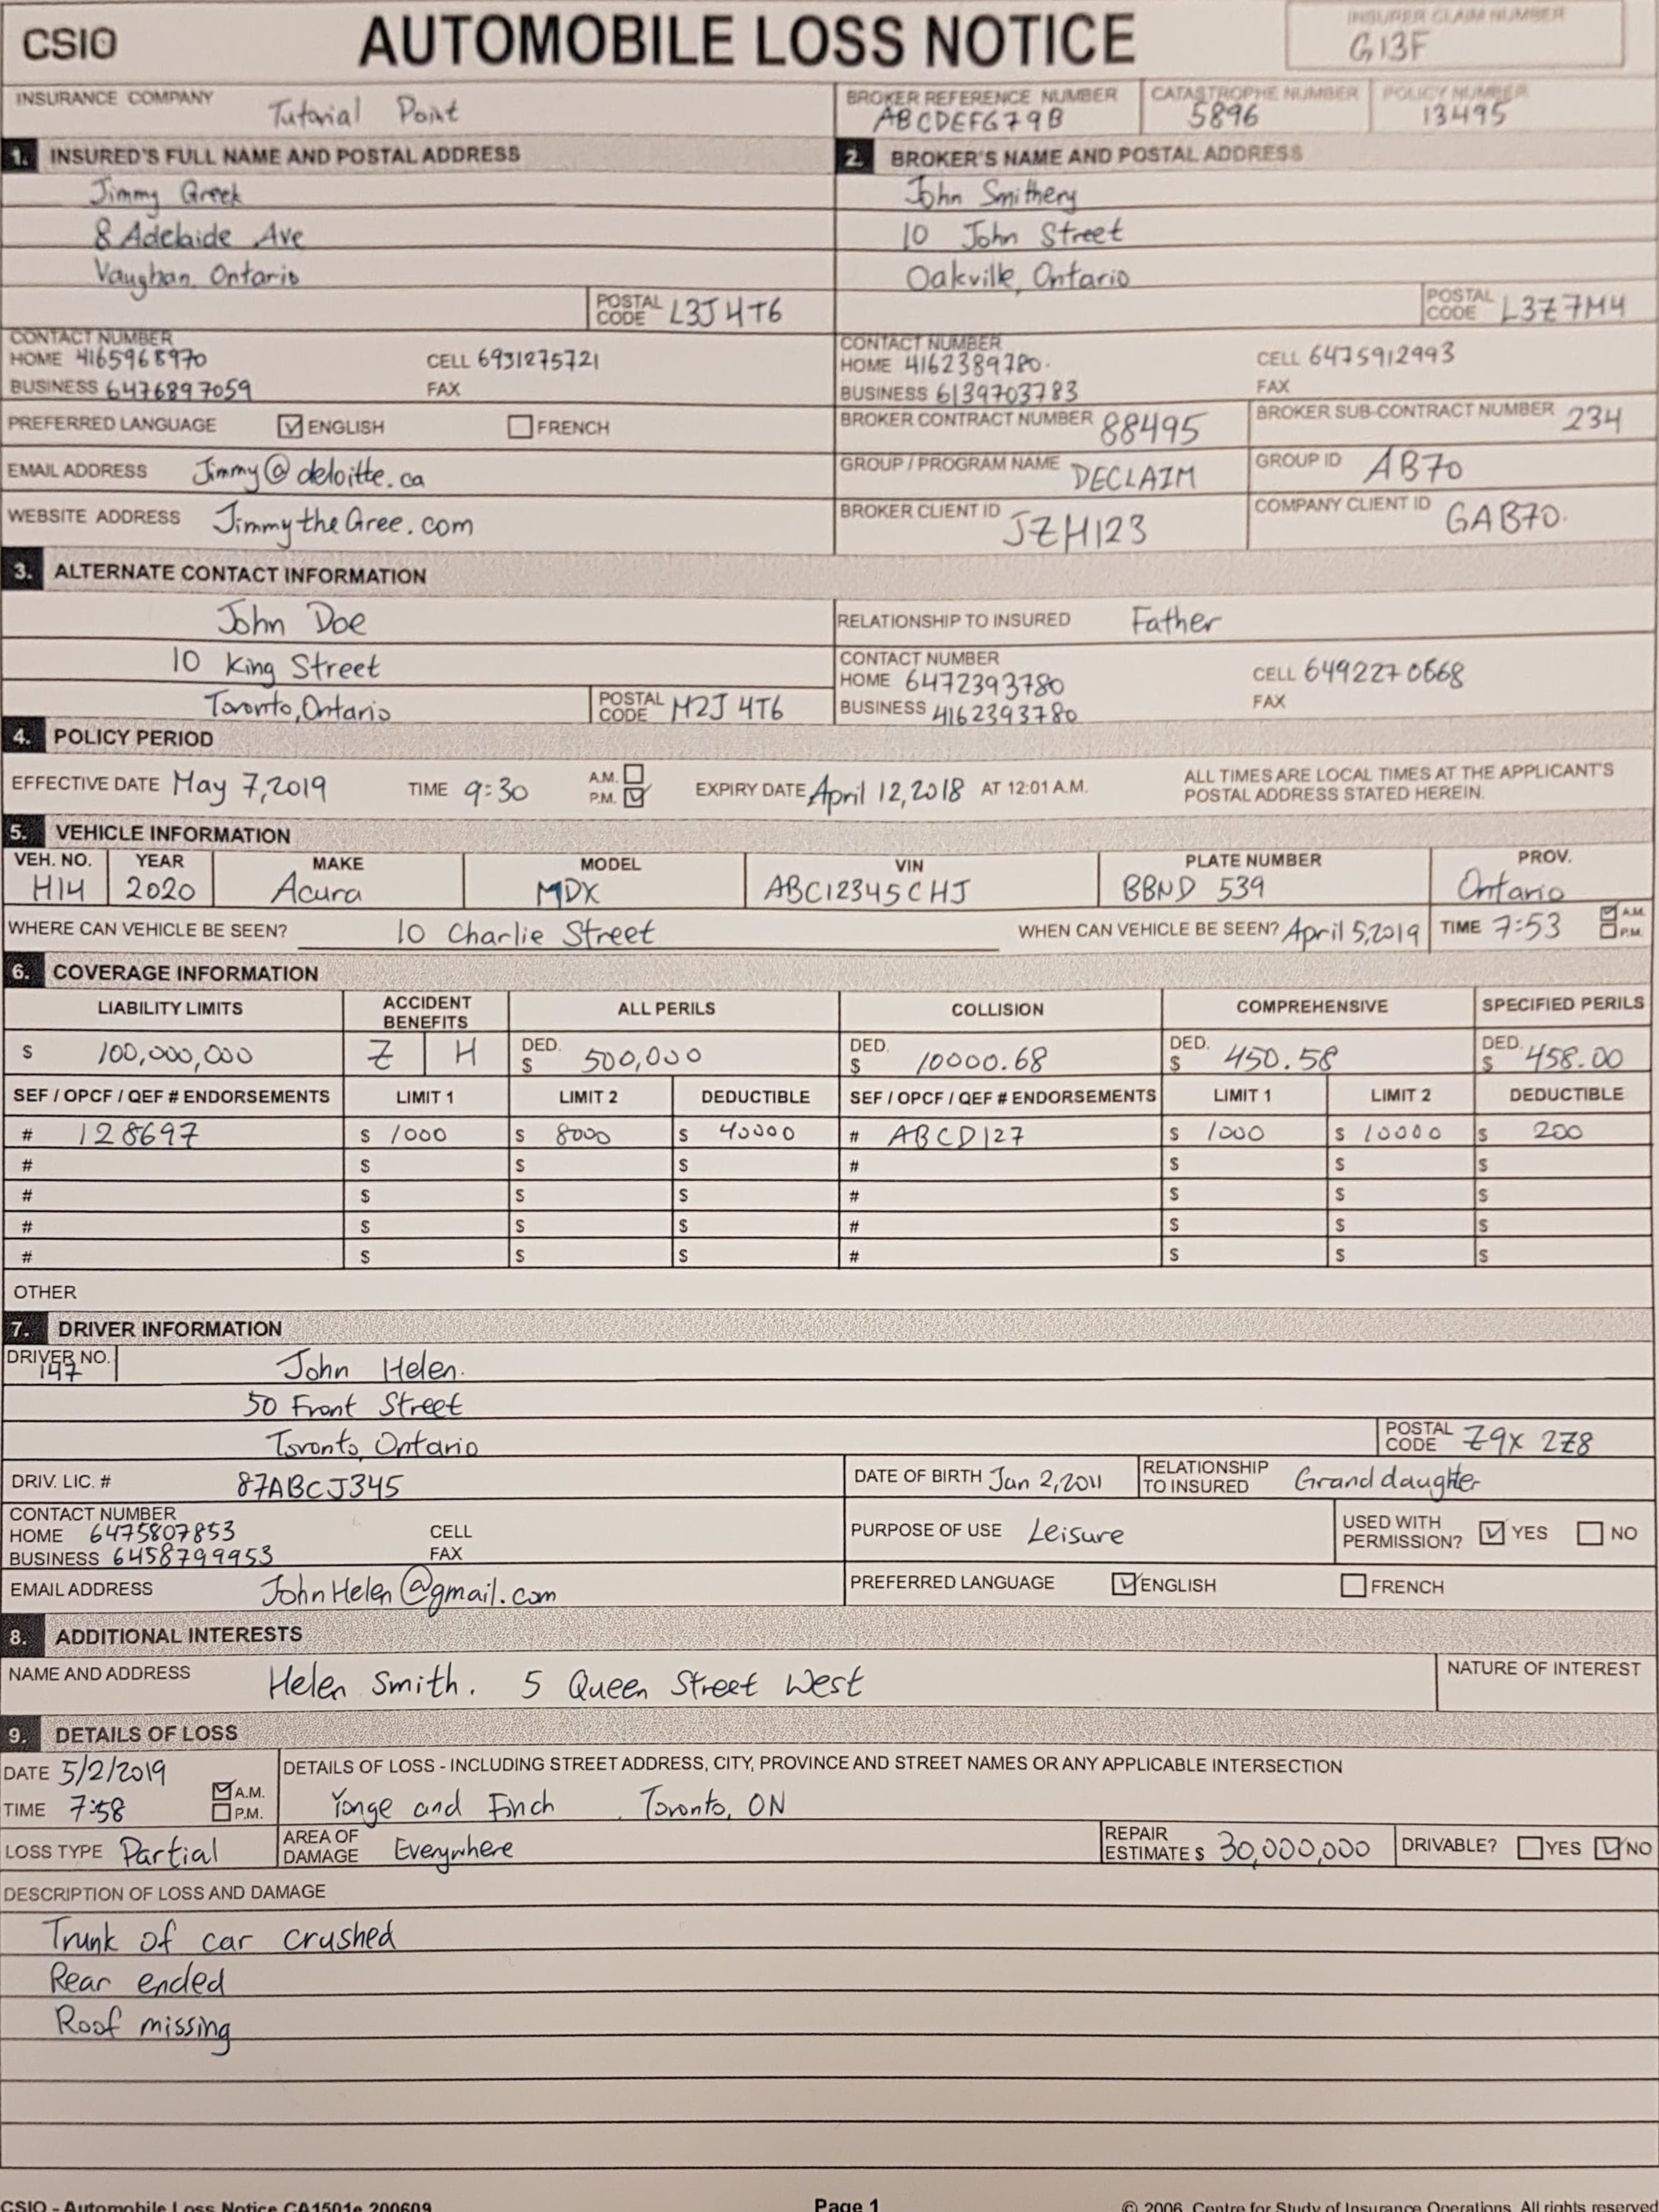 CSIO
AUTOMOBILE LOSS NOTICE
INSURER CLAIM NUMBER
G13F
INSURANCE COMPANY Tutorial Point
BROKER REFERENCE NUMBER ABCDEFG79B
CATASTROPHE NUMBER 5896
POLICY NUMBER 13495
1. INSURED'S FULL NAME AND POSTAL ADDRESS
Jimmy Greek
8 Adelaide Ave
Vaughan, Ontario
POSTAL CODE L3J 4T6
CONTACT NUMBER
HOME 4165968970 CELL 6931275721
BUSINESS 6476897059 FAX
PREFERRED LANGUAGE ENGLISH FRENCH
EMAIL ADDRESS Jimmy@deloitte.ca
WEBSITE ADDRESS JimmytheGree.com
2. BROKER'S NAME AND POSTAL ADDRESS
John Smithery
10 John Street
Oakville, Ontario
POSTAL CODE L3Z 7M4
CONTACT NUMBER
HOME 4162389780. CELL 6475912993
BUSINESS 6139703783 FAX
BROKER CONTRACT NUMBER 88495 BROKER SUB-CONTRACT NUMBER 234
GROUP / PROGRAM NAME DECLAIM GROUP ID AB70
BROKER CLIENT ID JZH123 COMPANY CLIENT ID GAB70.
3. ALTERNATE CONTACT INFORMATION
John Doe
10 King Street
Toronto, Ontario
POSTAL CODE M2J 4T6
RELATIONSHIP TO INSURED Father
CONTACT NUMBER
HOME 6472393780 CELL
BUSINESS 4162393780 FAX
4. POLICY PERIOD
EFFECTIVE DATE May 7, 2019 TIME 9:30 A.M. P.M. EXPIRY DATE April 12, 2018 AT 12:01 A.M.
ALL TIMES ARE LOCAL TIMES AT THE APPLICANT'S
POSTAL ADDRESS STATED HEREIN.
5. VEHICLE INFORMATION
VEH. NO. YEAR MAKE MODEL VIN PLATE NUMBER PROV.
H14 2020 Acura MDX ABC12345CHJ BBND 539 Ontario
WHERE CAN VEHICLE BE SEEN? 10 Charlie Street WHEN CAN VEHICLE BE SEEN? April 5, 2019 TIME 7:53 A.M. P.M.
6. COVERAGE INFORMATION
LIABILITY LIMITS ACCIDENT BENEFITS ALL PERILS COLLISION COMPREHENSIVE SPECIFIED PERILS
$ 100,000,000 Z H DED. $ 500,000 DED. $ 10000.68 DED. $ 450.58 DED. $ 458.00
SEF / OPCF / QEF # ENDORSEMENTS LIMIT 1 LIMIT 2 DEDUCTIBLE SEF / OPCF / QEF # ENDORSEMENTS LIMIT 1 LIMIT 2 DEDUCTIBLE
# 128697 $ 1000 $ 8000 $ 40000 # ABCD127 $ 1000 $ 10000 $ 200
# $ $ $ # $ $ $
# $ $ $ # $ $ $
# $ $ $ # $ $ $
# $ $ $ # $ $ $
OTHER
7. DRIVER INFORMATION
DRIVER NO. 147
John Helen.
50 Front Street
Toronto, Ontario
POSTAL CODE Z9X 2Z8
DRIV. LIC. # 87ABCJ345 DATE OF BIRTH Jan 2, 2011 RELATIONSHIP TO INSURED Grand daughter
CONTACT NUMBER
HOME 6475807853 CELL
BUSINESS 6458799953 FAX
PURPOSE OF USE Leisure USED WITH PERMISSION? YES NO
EMAIL ADDRESS JohnHelen@gmail.com PREFERRED LANGUAGE ENGLISH FRENCH
8. ADDITIONAL INTERESTS
NAME AND ADDRESS Helen Smith. 5 Queen Street West NATURE OF INTEREST
9. DETAILS OF LOSS
DATE 5/2/2019
TIME 7:58 A.M. P.M.
DETAILS OF LOSS - INCLUDING STREET ADDRESS, CITY, PROVINCE AND STREET NAMES OR ANY APPLICABLE INTERSECTION
Yonge and Finch Toronto, ON
LOSS TYPE Partial AREA OF DAMAGE Everywhere REPAIR ESTIMATE $ 30,000,000 DRIVABLE? YES NO
DESCRIPTION OF LOSS AND DAMAGE
Trunk of car crushed
Rear ended
Roof missing
CSIO - Automobile Loss Notice CA1501e 200609 Page 1 © 2006, Centre for Study of Insurance Operations. All rights reserved